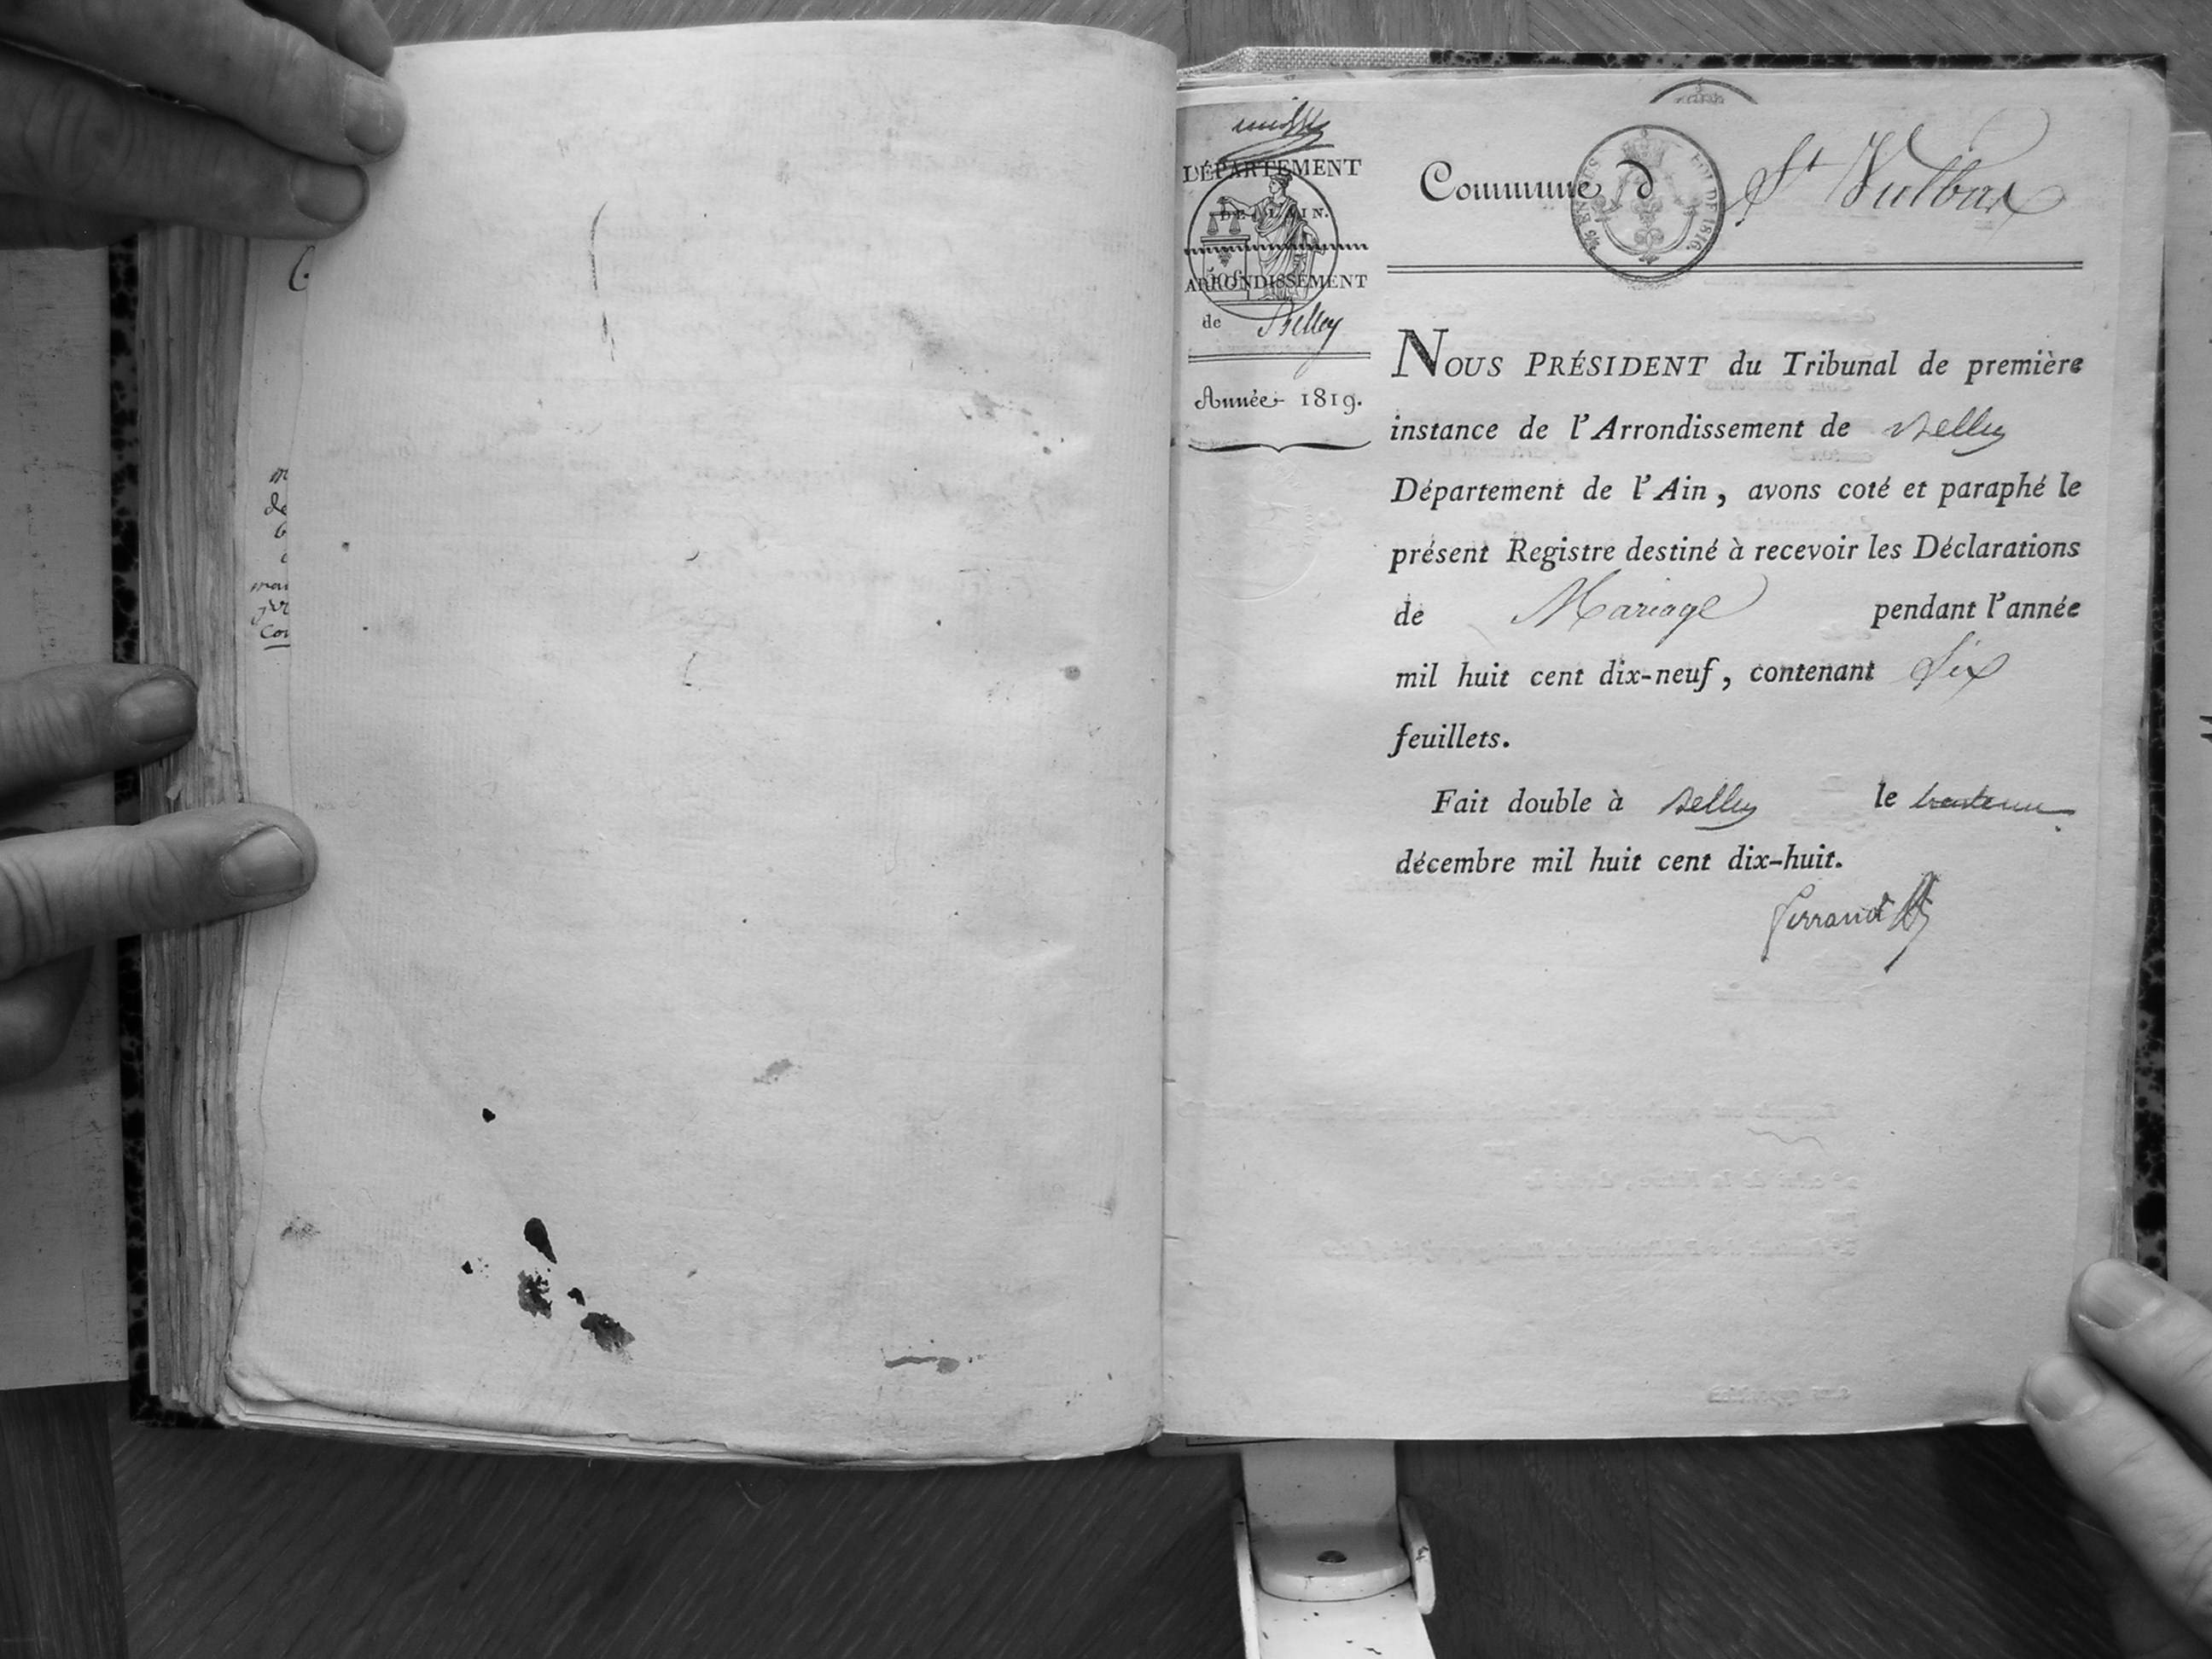 C.
m
de
mai
con
DÉPARTEMENT
DE L'AIN.
50 C.
ARRONDISSEMENT
de Belley
Année 1819.
Commune d St Vulbas
LOI DE 1816.
NOUS PRÉSIDENT du Tribunal de première
instance de l'Arrondissement de Belley
Département de l'Ain, avons coté et paraphé le
présent Registre destiné à recevoir les Déclarations
de Mariage pendant l'année
mil huit cent dix-neuf, contenant Six
feuillets.
Fait double à Belley le trente un
décembre mil huit cent dix-huit.
Ferrand